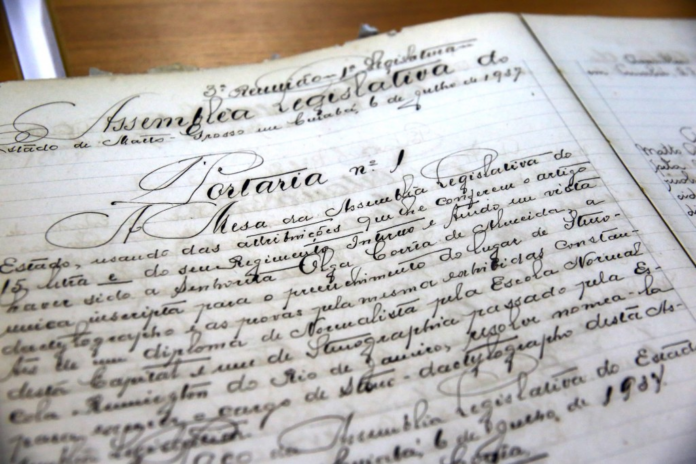 3ª Reunião - 1ª Legislatura
Assembléa Legislativa do
Estado de Matto-Grosso em Cuiabá, 6 de Julho de 1937.
Portaria nº 1
A Mesa da Assembléa Legislativa do
Estado, usando das attribuições que lhe conferem o artigo
15, letra e do seu Regimento Interno e tendo em vista
haver sido a Senhorita Olga Corrêa de Almeida, a
unica inscripta para o preenchimento do lugar de Steno-
dactylographo e as provas pela mesma exhibidas constan-
tes de um diploma de Normalista pela Escola Normal
desta Capital e um de Stenographia passado pela Es-
cola Remington do Rio de Janeiro, resolve nomea-la
para exercer o cargo de Steno-dactylographo desta As-
sembléa Legislativa.
Paço da Assembléa Legislativa do Estado
Cuiabá, 6 de Julho de 1937.